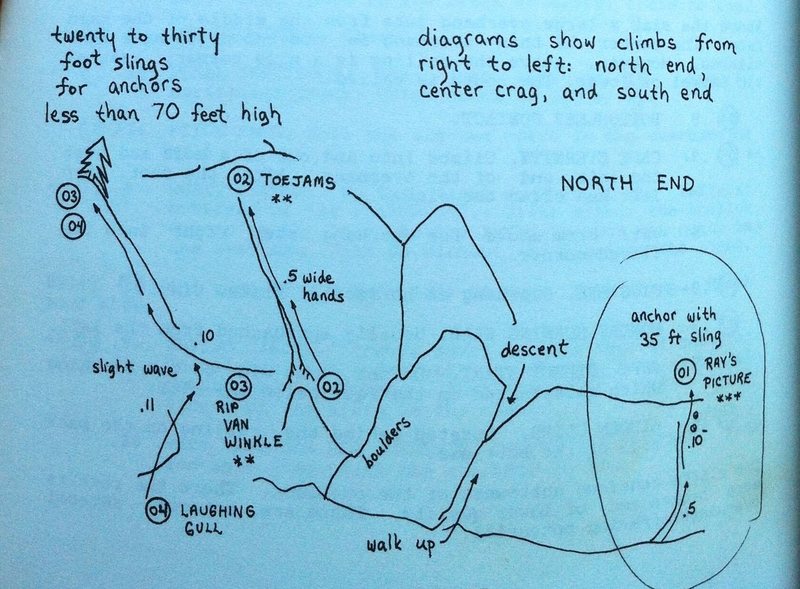 twenty to thirty
foot slings
for anchors
less than 70 feet high
diagrams show climbs from
right to left: north end,
center crag, and south end
NORTH END
03
04
02 TOEJAMS
**
.5 wide
hands
.10
slight wave
.11
03
RIP
VAN
WINKLE
**
02
04 LAUGHING
GULL
boulders
descent
walk up
anchor with
35 ft sling
01 RAY'S
PICTURE
***
.10-
.5